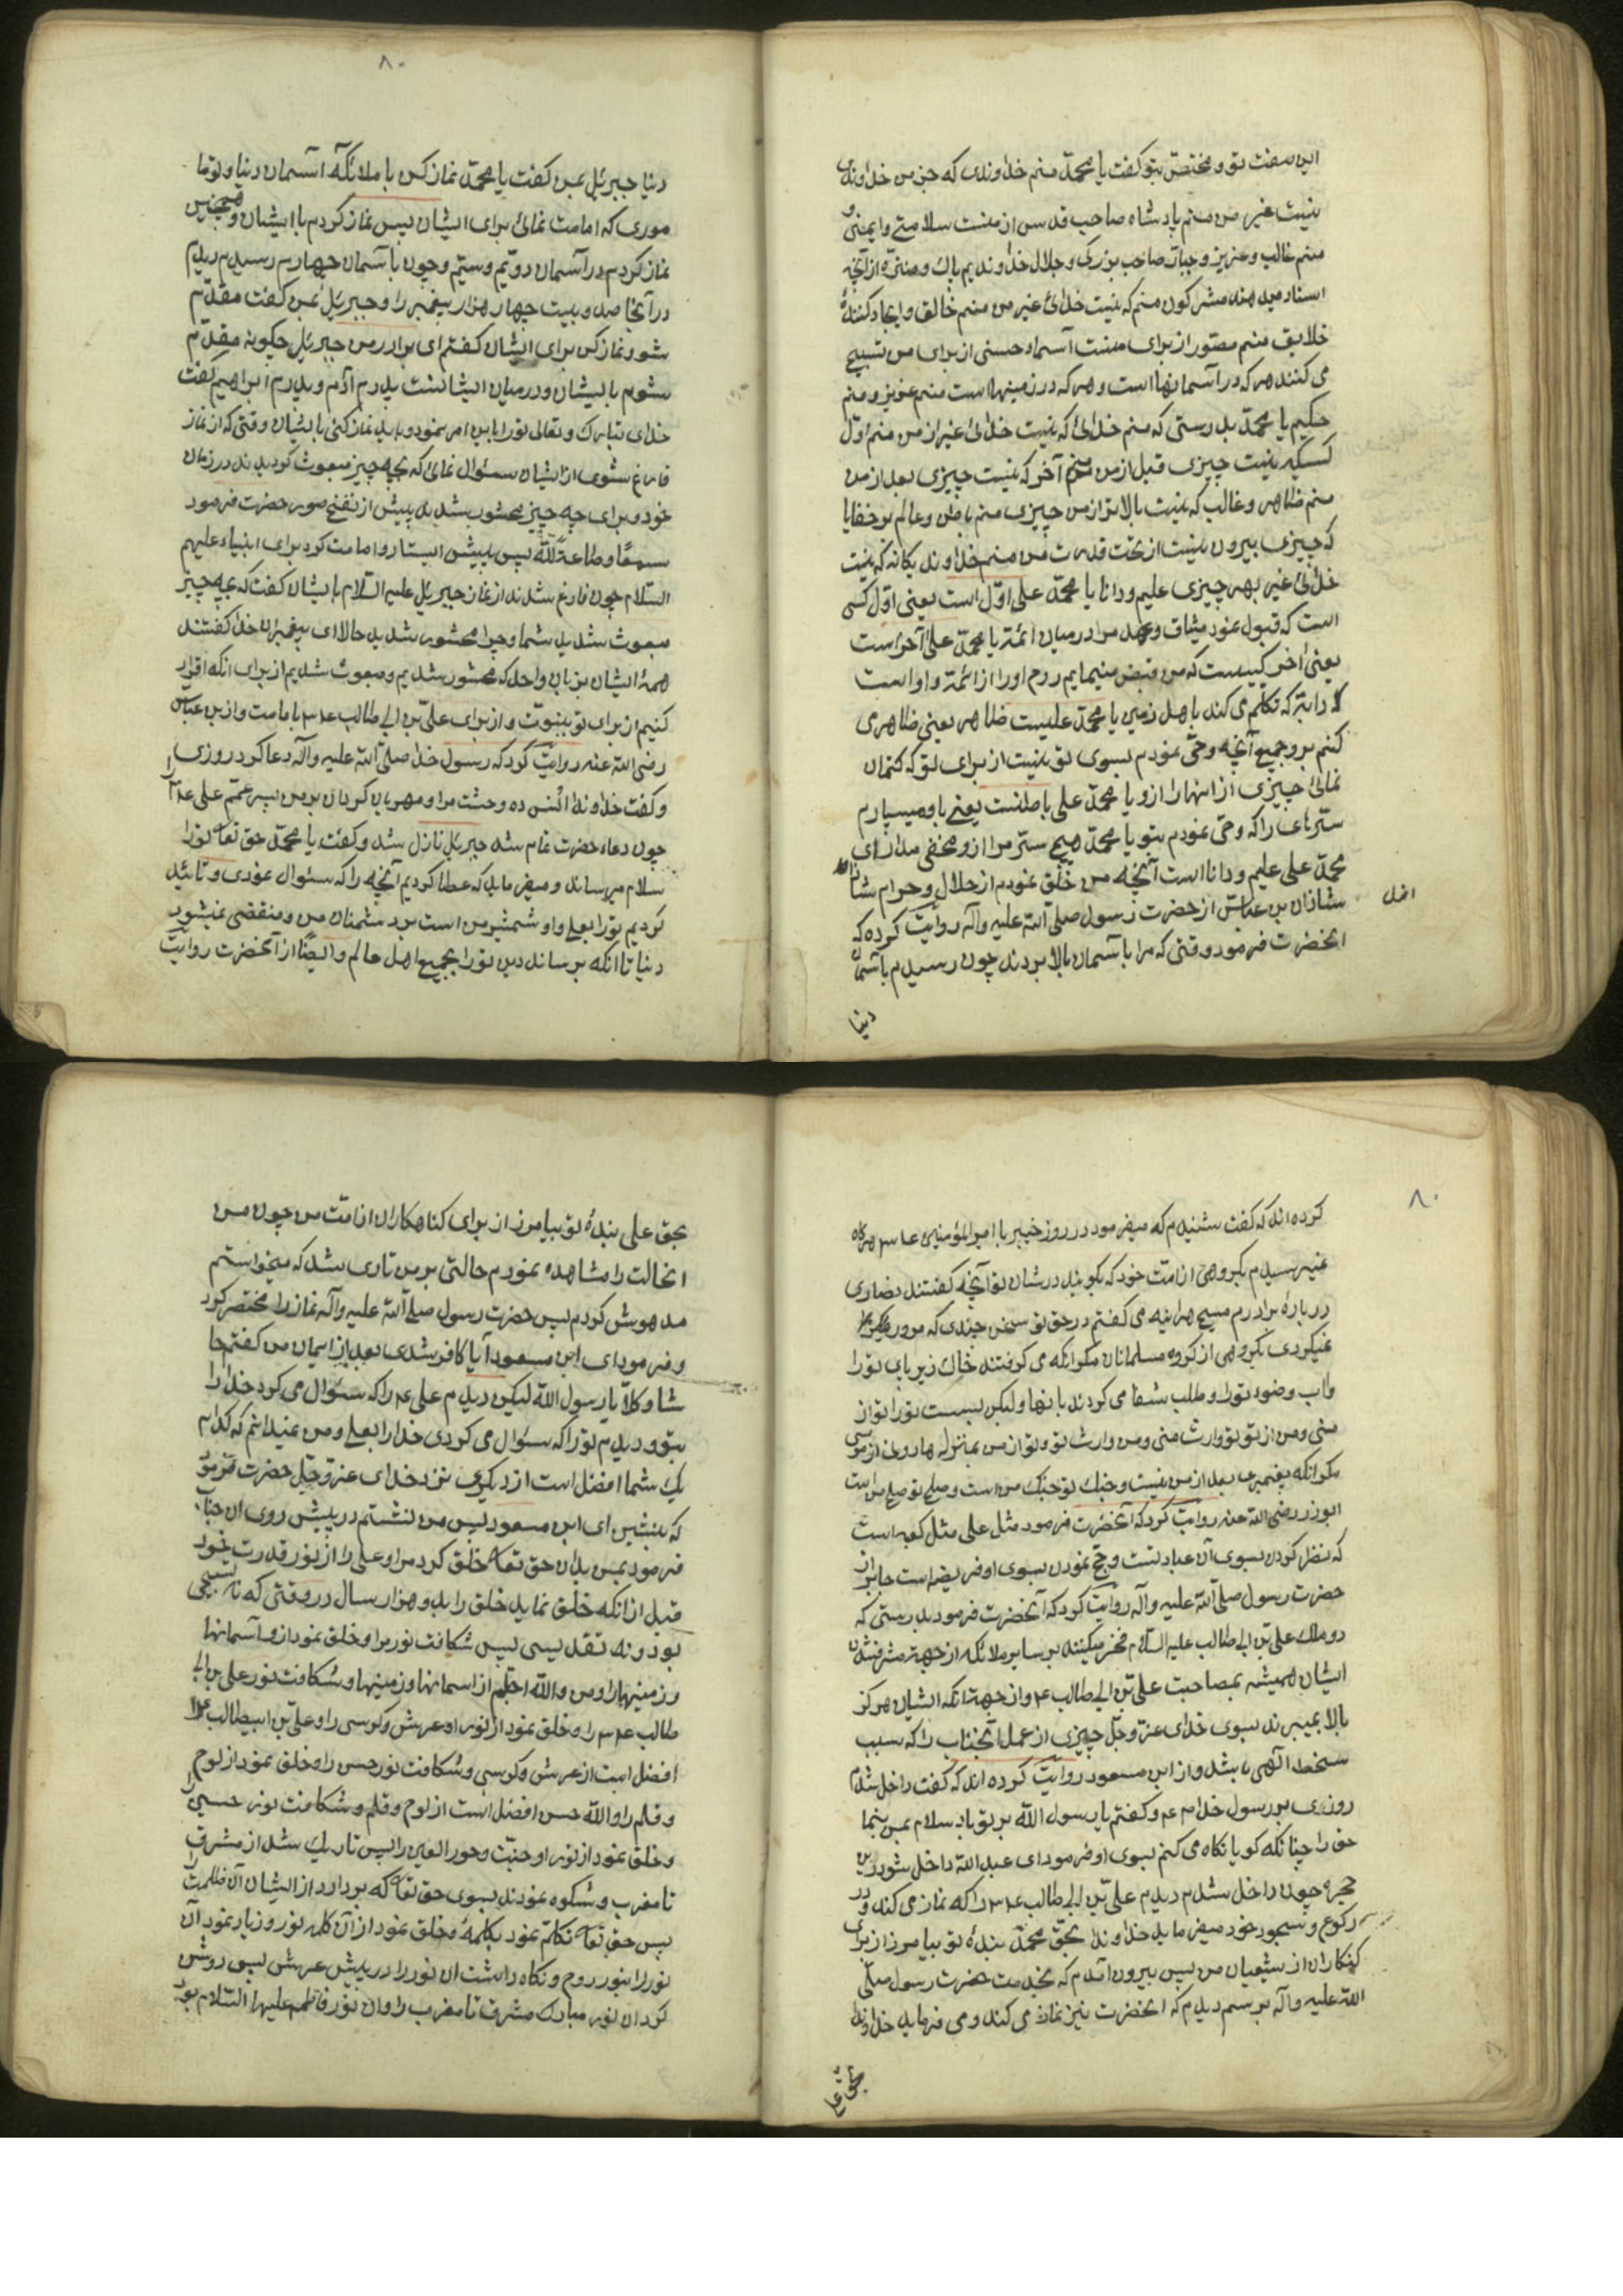 این صفت تو و مختص بتو کفت یا محمّد منم خداوندی که جز من خداوندی
نیست غیر من منم پادشاه صاحب قدس از منست سلامتے و ایمنی و
منم غالب و عزیز و جبّار صاحب بزرکی و جلال خداوندیم پاک و منزّه از آنچه
اسناد میدهند مشرکون منم که نیست خدائ غیر من منم خالق و ایجاد کنندهٔ
خلایق منم مصوّر از برای منست آسماء حسنی از برای من تسبیح
می کنند هر که در آسمانها است و هر که در زمینها است منم عزیز و منم
حکیم یا محمّد بدرستی که منم خدائ که نیست خدائ غیر از من منم اوّل
کسیکه نیست چیزی قبل از من منم آخر که نیست چیزی بعد از من
منم ظاهر و غالب که نیست بالاتر از من چیزی منم باطن و عالم بر خفایا
که چیزی بیرون نیست از تحت قدرت من منم خداوند یکانه که نیست
خدائ غیر بهر چیزی علیم و دانا یا محمّد علی اوّل است یعنی اوّل کسی
است که قبول نمود میثاق و عهد مرا در میان ائمّه یا محمّد علی آخر است
یعنی آخر کسیست که من قبض مینمایم روح او را از ائمّه و او است
دابّة که تکلّم می کند با اهل زمین یا محمّد علیست ظاهر یعنی ظاهری
کنم بر او جمیع آنچه وحی نمودم بسوی تو نیست از برای تو که کتمان
نمائ چیزی از انها را از او یا محمّد علی باطنست یعنے باو میسپارم
سرّهای را که وحی نمودم بتو یا محمّد هیچ سرّ مرا از او مخفی مدار ای
محمّد علی علیم و دانا است آنچه من خلق نمودم از حلال و حرام
شاذان بن عبّاس از حضرت رسول صلّی اللّه علیه و آله روایت کرده که
انحضرت فرمود وقتی که مرا باسمان بالا بردند چون رسیدم باسمان
دنیا
۸۰
دنیا جبرئیل بمن کفت یا محمّد نماز کن با ملائکه آسمان دنیا و تو ما
موری که امامت نمائ برای ایشان پس نماز کردم با ایشان و همچنین
نماز کردم در آسمان دویّم و سیّم و چون باسمان چهارم رسیدم دیدم
در آنجا صد و بیست چهار هزار پیغمبر را و جبرئیل بمن کفت مقدّم
شو و نماز کن برای ایشان کفتم ای برادر من جبرئیل چکونه مقدّم
شوم بایشان و در میان ایشانست پدرم آدم و پدرم ابراهیم کفت
خدای تبارک و تعالی تو را باین امر نمود و باید نماز کنی بایشان وقتی که از نماز
فارغ شوی از ایشان سئوال نمائ که بچه چیز مبعوث کردیدند در زمان
خود و برای چه چیز محشور شدند پیش از نفخ صور حضرت فرمود
سمعًا و طاعةً للّه پس پیش ایستاد و امامت کرد برای انبیاء علیهم
السلام چون فارغ شدند از نماز جبرئیل علیه السّلام بایشان کفت که بچه چیز
مبعوث شدید شما و چرا محشور شدید حالا ای پیغمبران خدا کفتند
همهٔ ایشان بزبان واحد که محشور شدیم و مبعوث شدیم از برای انکه اقرار
کنیم از برای تو بنبوّت و از برای علیّ بن ابی طالب ع بامامت و از ابن عبّاس
رضی اللّه عنه روایت کرد که رسول خدا صلّی اللّه علیه و آله دعا کرد روزی
و کفت خداوندا انس ده وحشت مرا و مهربان کردان بر من پسر عمّم علی را
چون دعاء حضرت تمام شد جبرئیل نازل شد و کفت یا محمّد حق تعا تو را
سلام میرساند و میفرماید که عطا کردیم آنچه را که سئوال نمودی و تائید
کردیم تو را بعلی و او شمشیر من است بر دشمنان من و منقضی نمیشود
دنیا تا انکه برساند دین تو را بجمیع اهل عالم و ایضًا از آنحضرت روایت
۸۰
کرده اند که کفت شنیدم که میفرمود در روز خیبر با امیرالمؤمنین
نمیترسیدم بکروهی از امّت خود که بکویند در شان تو آنچه کفتند نصاری
در بارهٔ برادرم مسیح هراینه می کفتم در حق تو سخن چندی که مرور
نمیکردی بکروهی از کروه مسلمانان مکر انکه می کرفتند خاک زیر پای تو را
و آب وضوء تو را و طلب شفا می کردند بانها و لیکن بسست تو را تو از
منی و من از تو تو وارث منی و من وارث تو و تو از من بمنزله هارونی از موسی
مکر انکه پیغمبری بعد از من نیست و جنک تو جنک من است و صلح تو صلح من است
ابوذر رضی اللّه عنه روایت کرد که آنحضرت فرمود مثل علی مثل کعبه است
که نظر کردن بسوی آن عبادتست و حجّ نمودن بسوی او فریضه است جابر از
حضرت رسول صلّی اللّه علیه و آله روایت کرد که آنحضرت فرمود بدرستی که
دو ملک علیّ بن ابی طالب علیه السّلام فخر میکنند بر سایر ملائکه از جهة مشرف شدن
ایشان همیشه بمصاحبت علیّ بن ابی طالب ع و از جهة انکه ایشان هرکز
بالا نمیبرند بسوی خدای عزّ و جلّ چیزی از عمل آنجناب را که سبب
سخط الهی باشد و از ابن مسعود روایت کرده اند که کفت داخل شدم
روزی بر رسول خدا ص و کفتم یا رسول اللّه بر تو باد سلام بمن بنما
حق را چنانکه کویا نکاه می کنم بسوی او فرمود ای عبد اللّه داخل شو در این
حجره چون داخل شدم دیدم علیّ بن ابی طالب ع را که نماز می کند و در
رکوع و سجود خود میفرماید خداوندا بحقّ محمّد بندهٔ تو بیامرز از برای
کنکاران از شیعیان من پس بیرون آمدم که بخدمت حضرت رسول صلّی
اللّه علیه و آله برسم دیدم که انحضرت نیز نماز می کند و می فرماید خداوندا
بحقّ علی
بحق علی بندهٔ تو بیامرز از برای کناهکاران از امّت من چون من
انحالت را مشاهده نمودم حالتی بر من تاری شد که میخواستم
مدهوش کردم پس حضرت رسول صلّی اللّه علیه و آله نماز را مختصر کرد
و فرمود ای ابن مسعود آیا کافر شدی بعد از ایمان من کفتم حا
شا و کلّا یا رسول اللّه لیکن دیدم علی ع را که سئوال می کرد خدا را
بتو و دیدم تو را که سئوال می کردی خدا را بعلی و من نمیدانم که کدام
یک شما افضل است از دیکری نزد خدای عزّ و جلّ حضرت فرمود
که بنشین ای ابن مسعود پس من نشستم در پیش روی ان جناب
فرمود بمن بدان حق تعا خلق کرد مرا و علی را از نور قدرت خود
قبل از انکه خلق نماید خلق را بدو هزار سال در وقتی که نه تسبیحی
بود و نه تقدیسی پس شکافت نور مرا و خلق نمود از او آسمانها
و زمینها را و من واللّه اجلّم از اسمانها و زمینها و شکافت نور علی بن ابی
طالب ع را و خلق نمود از نور او عرش و کرسی را و علیّ بن ابیطالب ع
افضل است از عرش و کرسی و شکافت نور حسن را و خلق نمود از او لوح
و قلم را واللّه حسن افضل است از لوح و قلم و شکافت نور حسین را
و خلق نمود از نور او جنّت و حور العین را پس تاریک شد از مشرق
تا مغرب و شکوه نمودند بسوی حق تعا که بردارد از ایشان آن ظلمت را
پس حق تعا تکلّم نمود بکلمهٔ و خلق نمود از آن کلمه نور و زیاد نمود آن
نور را بنور روح و نکاه داشت ان نور را در پیش عرش پس روشن
کرد ان نور مبارک مشرق تا مغرب را و ان نور فاطمه علیها السّلام بود